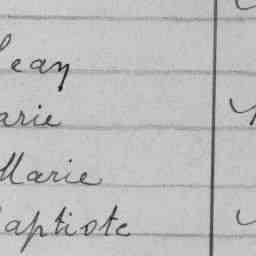 Jean
arie
Marie
Baptiste